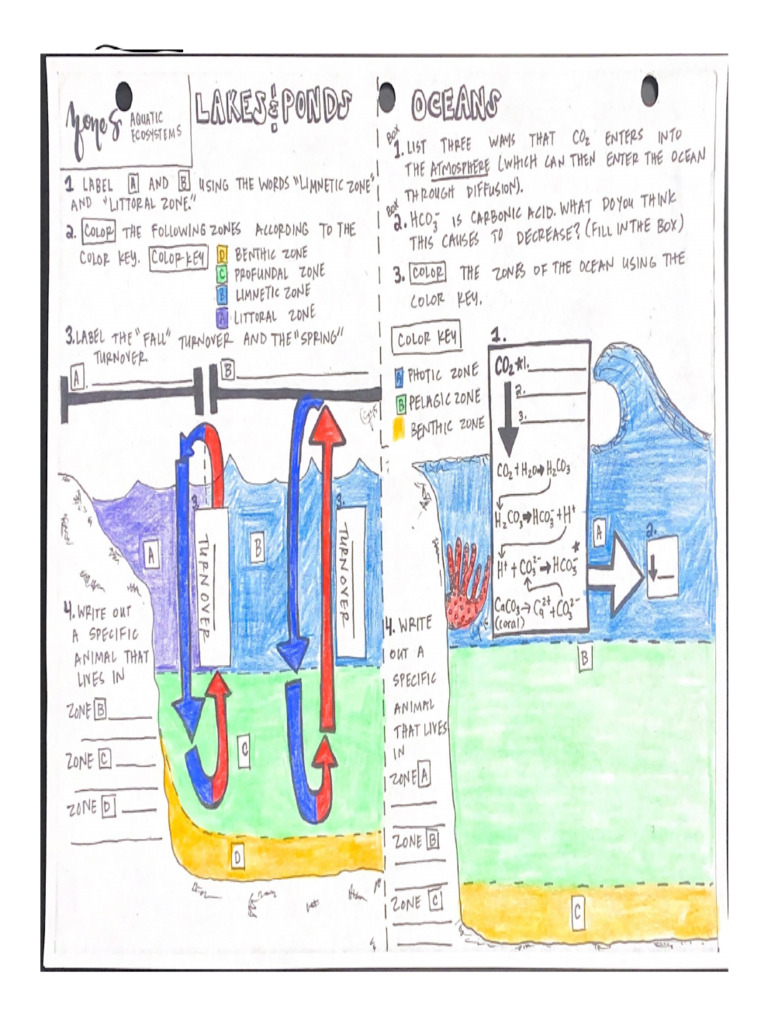 Zones AQUATIC
ECOSYSTEMS
LAKES & PONDS
1 LABEL A AND B USING THE WORDS "LIMNETIC ZONE"
AND "LITTORAL ZONE."
2. COLOR THE FOLLOWING ZONES ACCORDING TO THE
COLOR KEY. COLOR KEY D BENTHIC ZONE
C PROFUNDAL ZONE
B LIMNETIC ZONE
A LITTORAL ZONE
3. LABEL THE "FALL" TURNOVER AND THE "SPRING"
TURNOVER
A. B.
3. TURNOVER
3. TURNOVER
A
B
C
D
4. WRITE OUT
A SPECIFIC
ANIMAL THAT
LIVES IN
ZONE B
ZONE C
ZONE D
OCEANS
BOX
1. LIST THREE WAYS THAT CO2 ENTERS INTO
THE ATMOSPHERE (WHICH CAN THEN ENTER THE OCEAN
THROUGH DIFFUSION).
BOX
2. HCO3- IS CARBONIC ACID. WHAT DO YOU THINK
THIS CAUSES TO DECREASE? (FILL IN THE BOX)
3. COLOR THE ZONES OF THE OCEAN USING THE
COLOR KEY.
COLOR KEY
A PHOTIC ZONE
B PELAGIC ZONE
BENTHIC ZONE
1.
CO2 * 1.
2.
3.
CO2 + H2O → H2CO3
H2CO3 → HCO3- + H+
H+ + CO3 2- → HCO3- *
CaCO3 → Ca 2+ + CO3 2-
(coral)
A
2.
B
C
4. WRITE
OUT A
SPECIFIC
ANIMAL
THAT LIVES
IN
ZONE A
ZONE B
ZONE C